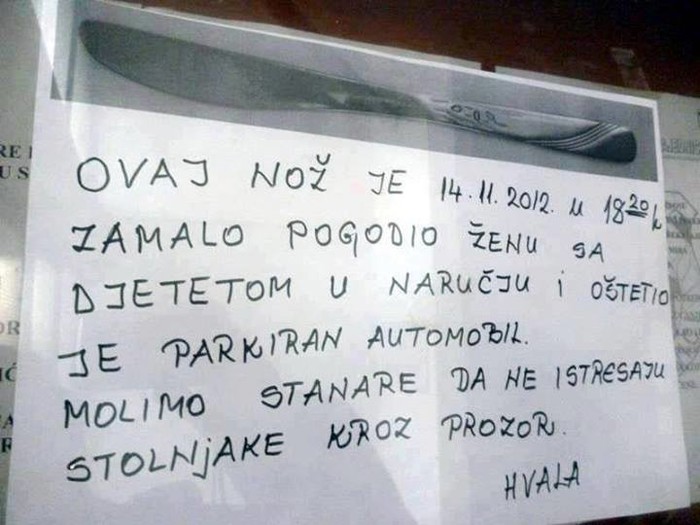 OVAJ NOŽ JE 14.11.2012. u 18²⁰h
ZAMALO POGODIO ŽENU SA
DJETETOM U NARUČJU i OŠTETIO
JE PARKIRAN AUTOMOBIL.
MOLIMO STANARE DA NE ISTRESAJU
STOLNjAKE KROZ PROZOR.
HVALA